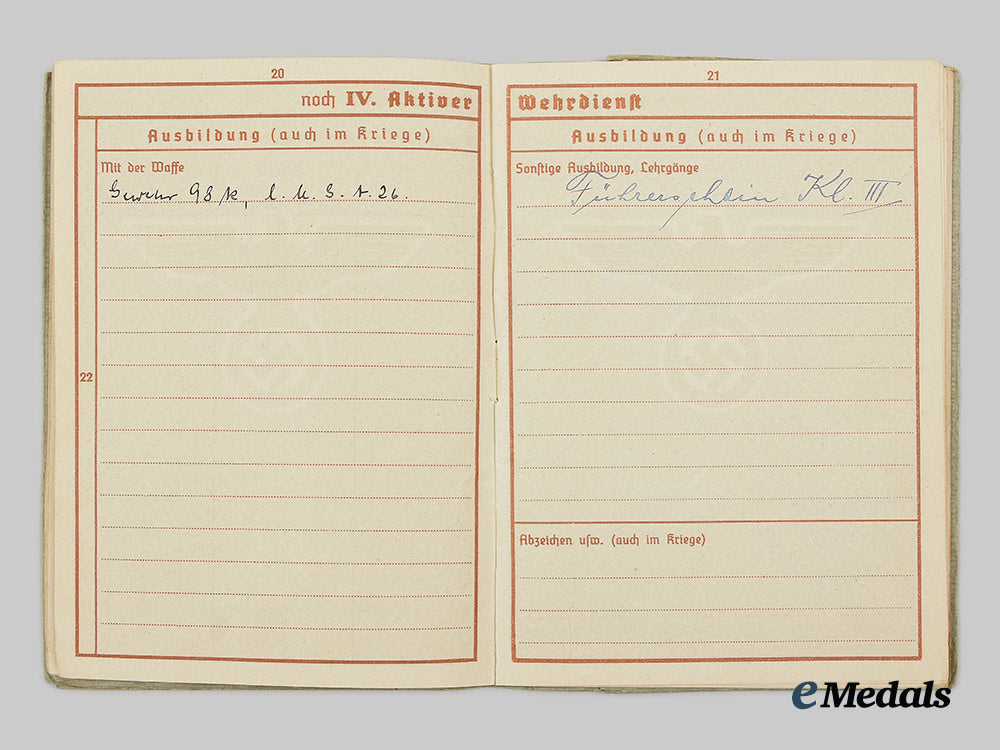 20
noch IV. Aktiver
Ausbildung (auch im Kriege)
Mit der Waffe
Gewehr 98 k, l. M. G. t. 26.
22
21
Wehrdienst
Ausbildung (auch im Kriege)
Sonstige Ausbildung, Lehrgänge
Führerschein Kl. III
Abzeichen usw. (auch im Kriege)
eMedals